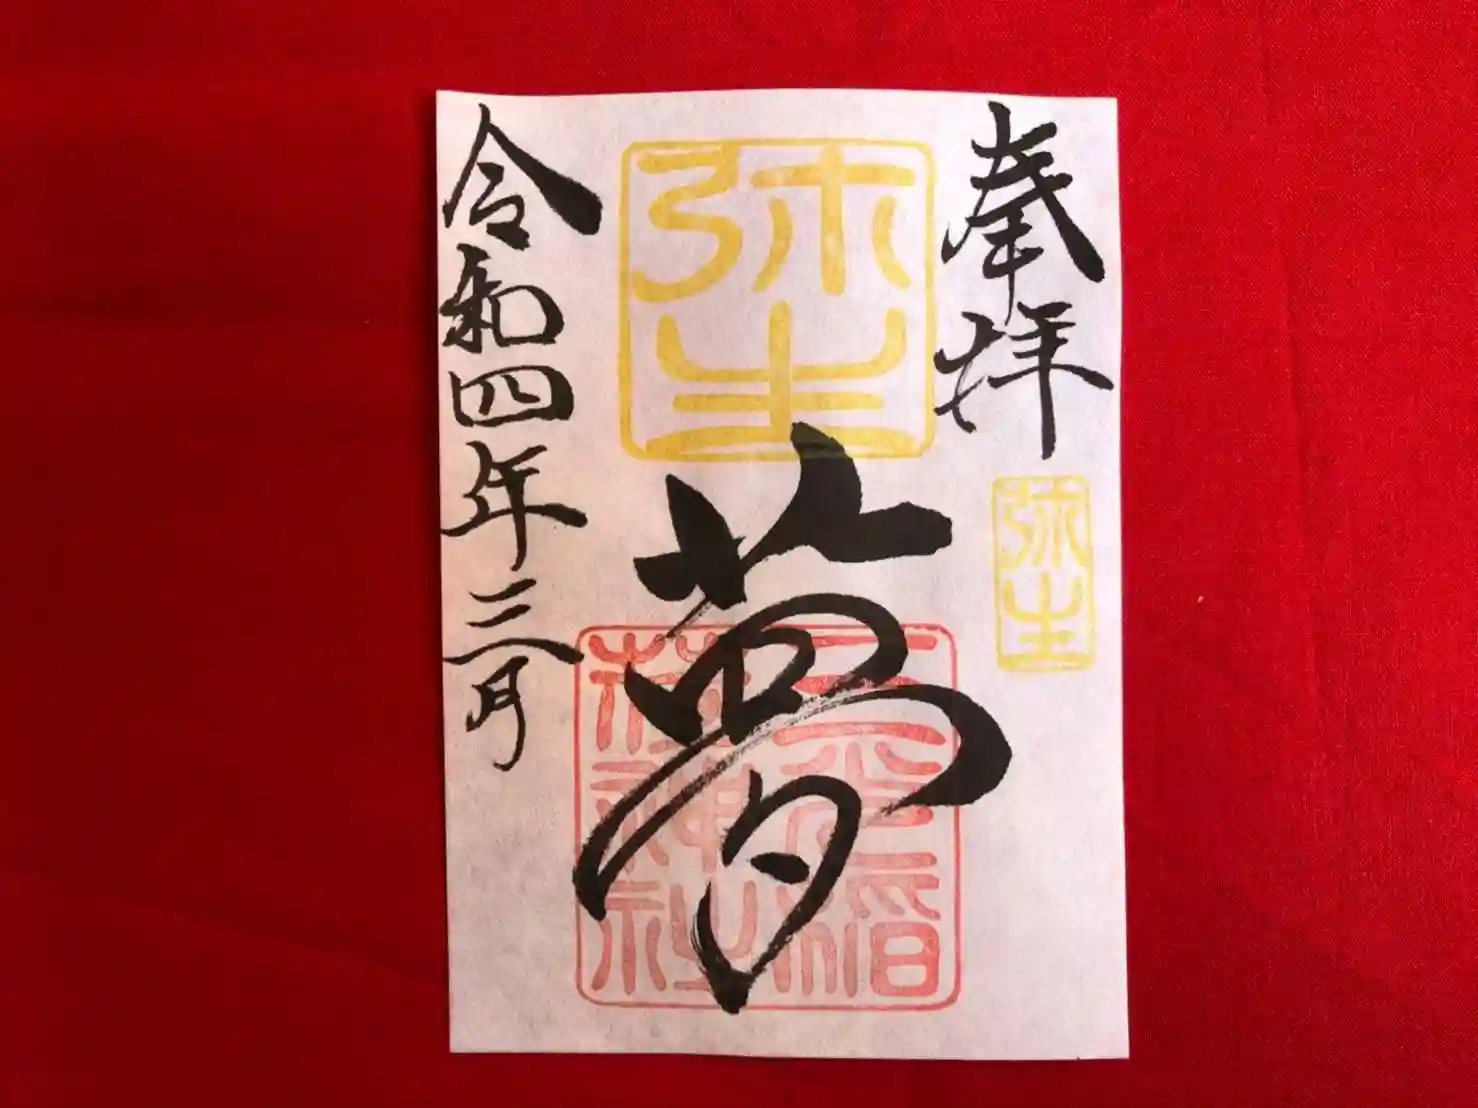 奉拝
弥生
弥生
夢
神社
令和四年三月